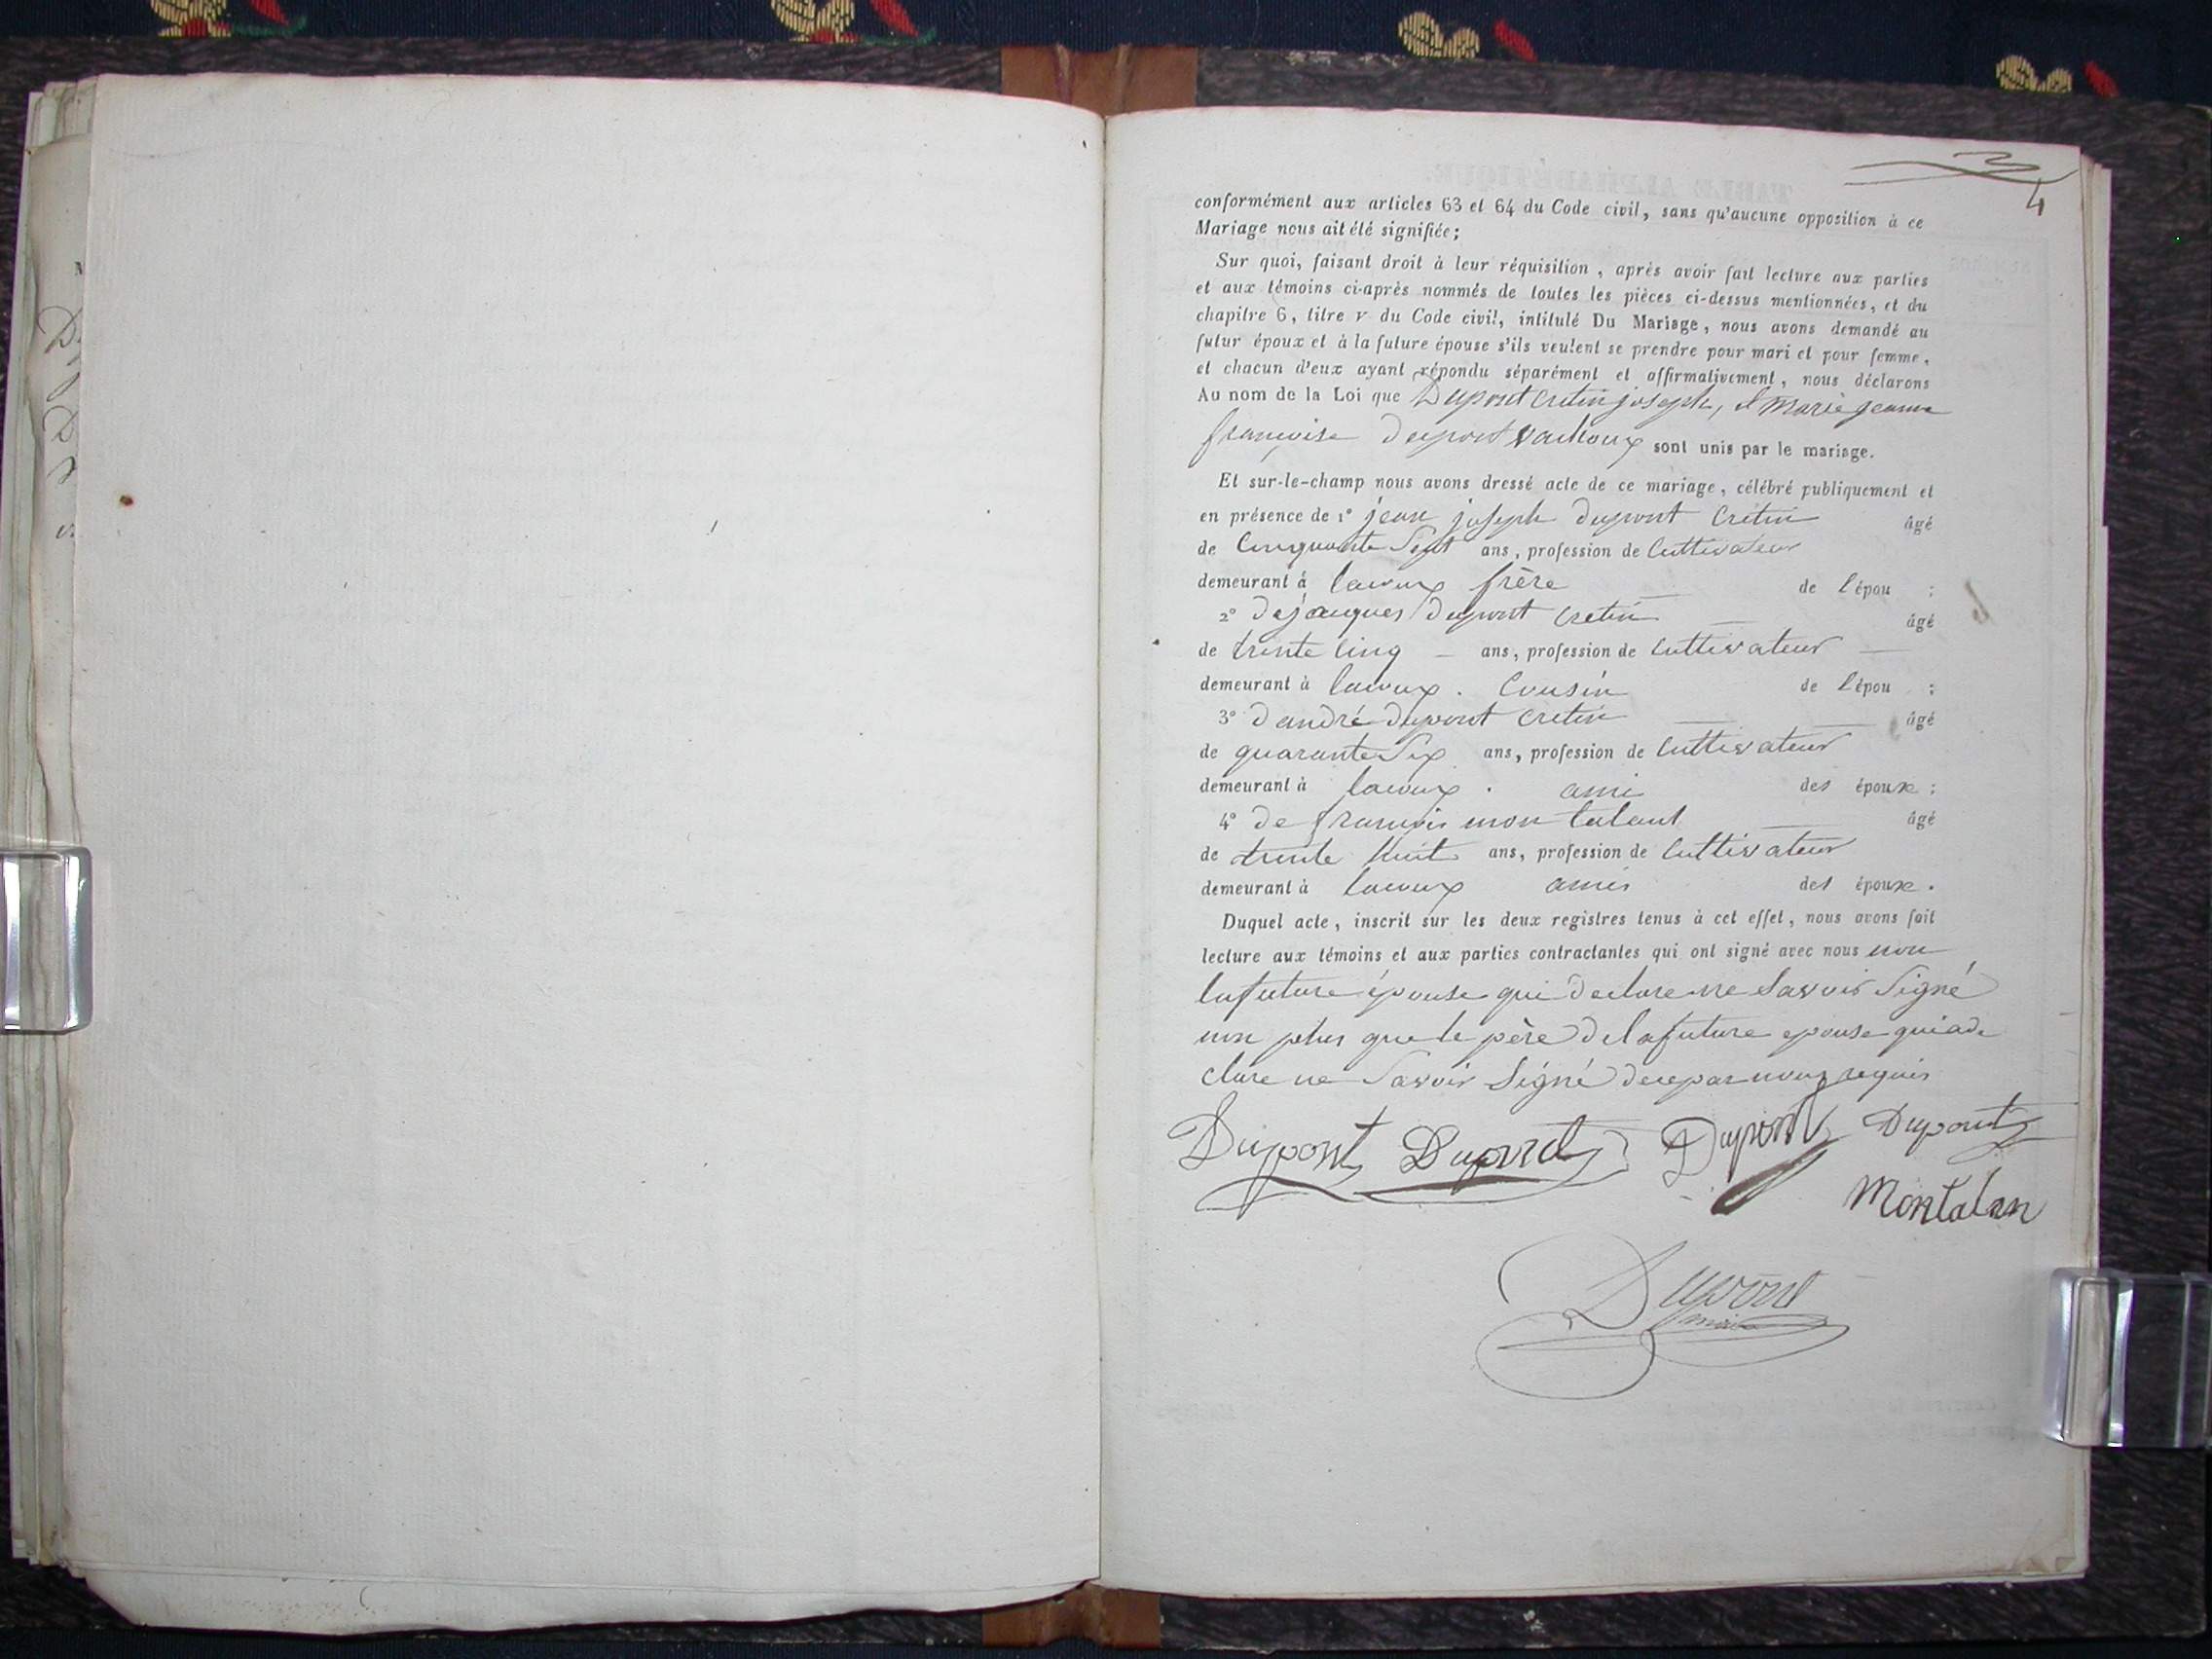 4
conformément aux articles 63 et 64 du Code civil, sans qu'aucune opposition à ce
Mariage nous ait été signifiée;
Sur quoi, faisant droit à leur réquisition, après avoir fait lecture aux parties
et aux témoins ci-après nommés de toutes les pièces ci-dessus mentionnées, et du
chapitre 6, titre v du Code civil, intitulé Du Mariage, nous avons demandé au
futur époux et à la future épouse s'ils veulent se prendre pour mari et pour femme,
et chacun d'eux ayant répondu séparément et affirmativement, nous déclarons
Au nom de la Loi que Dupont Cretin joseph, et marie jeanne
françoise dupont Vachoux sont unis par le mariage.
Et sur-le-champ nous avons dressé acte de ce mariage, célébré publiquement et
en présence de 1° jean joseph dupont Cretin âgé
de Cinquante Sept ans, profession de Cultivateur
demeurant à lavoux frère de l'épou ;
2° de jacques dupont Cretin âgé
de trente cinq — ans, profession de Cultivateur —
demeurant à lavoux. Cousin de l'épou ;
3° d'andré dupont Cretin âgé
de quarante Six ans, profession de Cultivateur
demeurant à lavoux. ami des époux ;
4° de françois mon talant âgé
de trente huit ans, profession de Cultivateur
demeurant à lavoux amis des époux.
Duquel acte, inscrit sur les deux registres tenus à cet effet, nous avons fait
lecture aux témoins et aux parties contractantes qui ont signé avec nous non
la future épouse qui déclare ne Savoir Signé
non plus que le père de la future epouse qui a dé
clare ne Savoir Signé de ce par nous requis
Dupont Dupont Dupont Dupont
Montalan
Dupont
maire